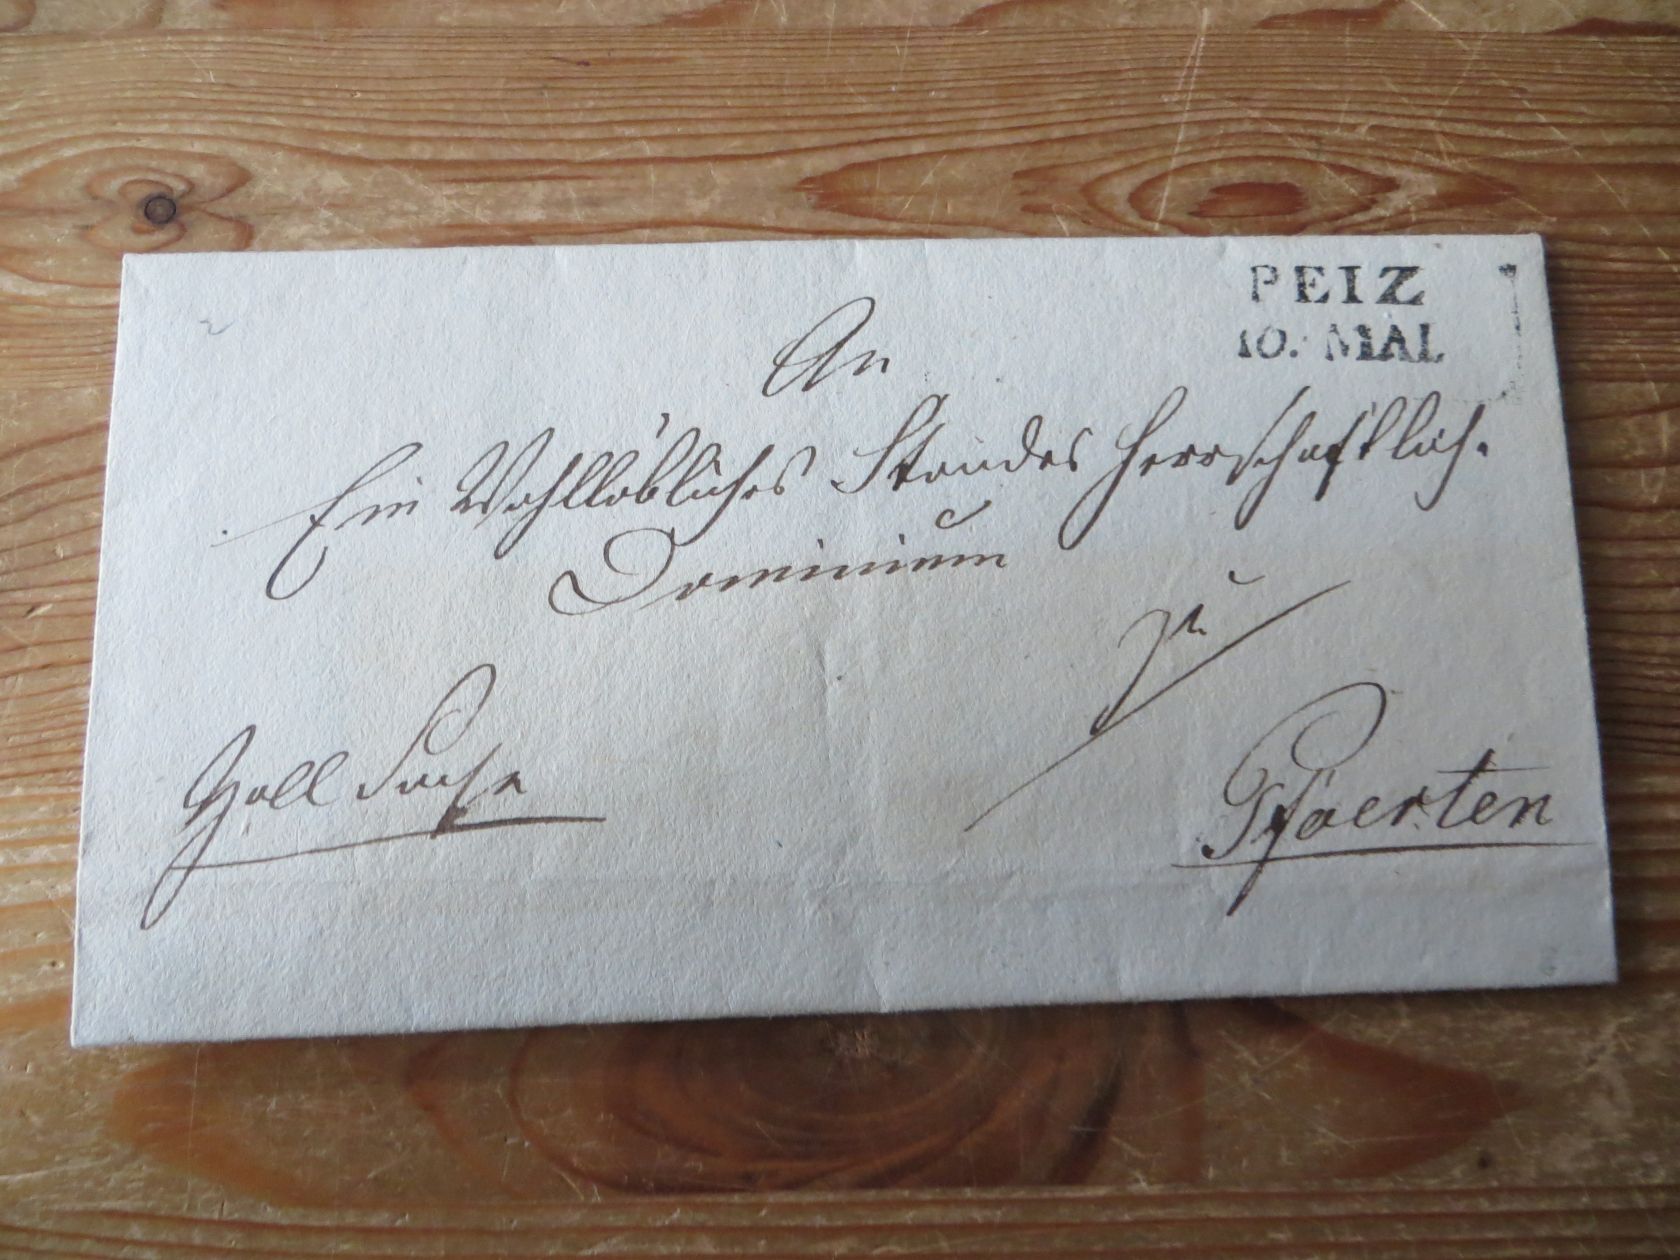 PEIZ
10. MAI.
An
Ein Wohllöbliches Standes Herrschaftlich.
Dominium
zu
Pfoerten
Zoll Sache